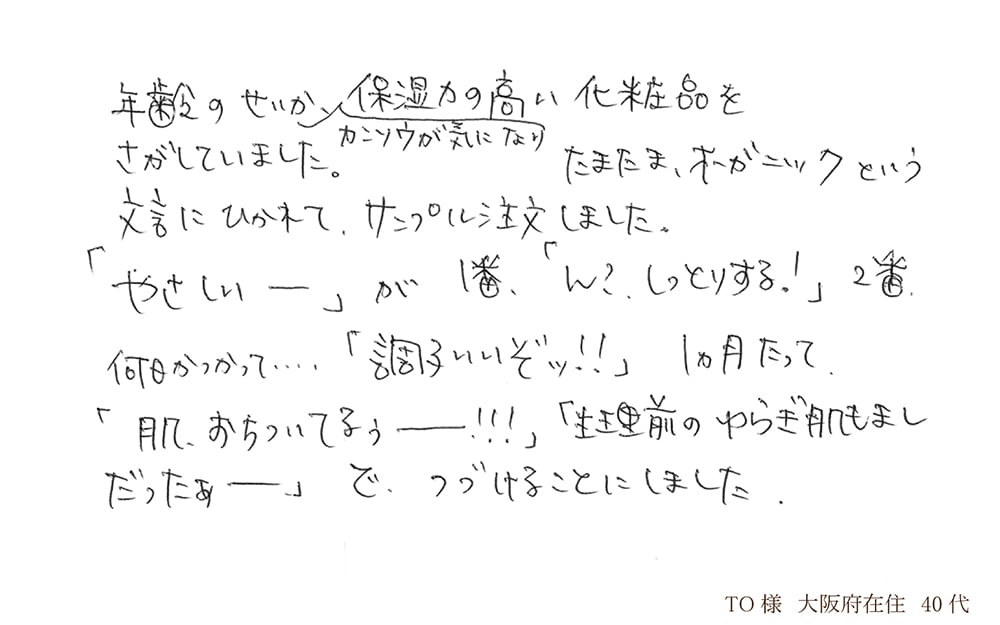 年齢のせいか、保湿力の高い化粧品を
カンソウが気になり
さがしていました。 たまたま、オーガニックという
文言にひかれて、サンプル注文しました。
「やさしいー」が1番、「ん?、しっとりする!」2番、
何日かつかって‥‥「調子いいぞッ!!」1ヵ月たって、
「肌、おちついてるぅー!!!」「生理前のゆらぎ肌もまし
だったぁー」で、つづけることにしました。
TO様 大阪府在住 40代